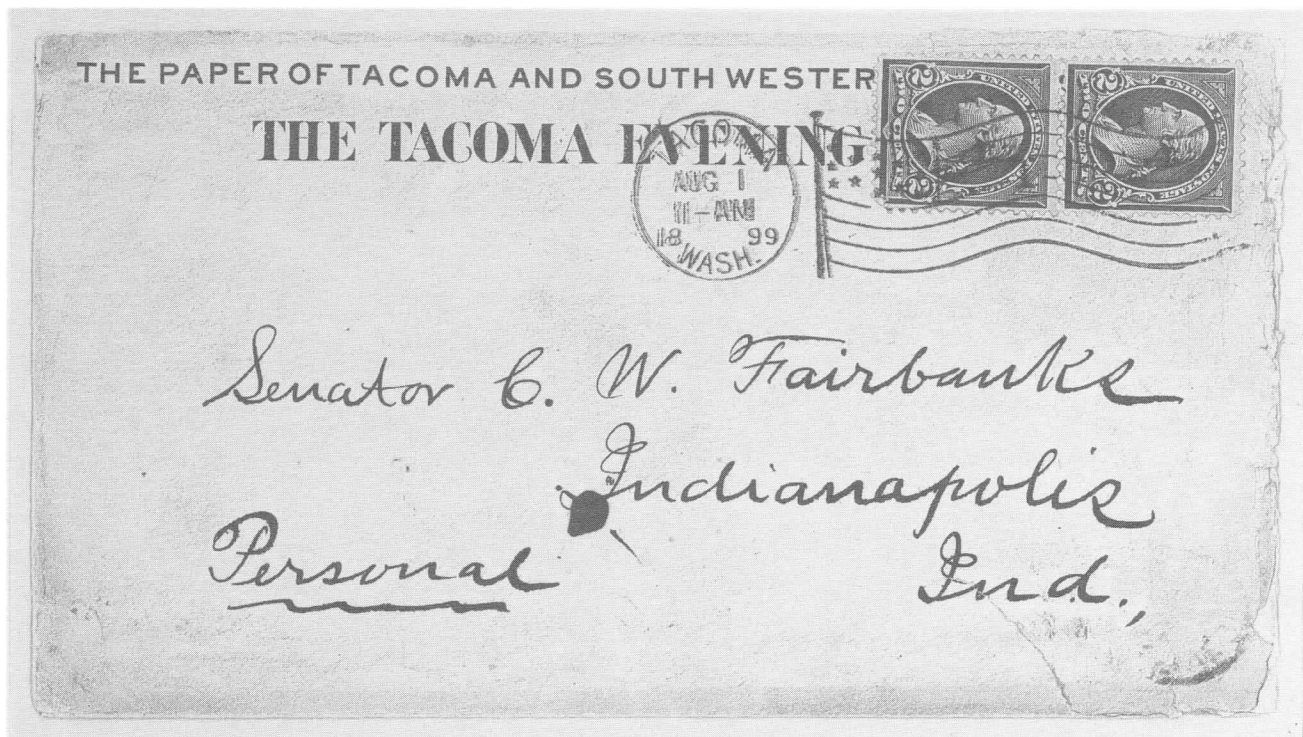 THE PAPER OF TACOMA AND SOUTH WESTER
THE TACOMA EVENING
TACOMA
AUG 1
11-AM
18 99
WASH.
2 UNITED STATES POSTAGE 2
2 UNITED STATES POSTAGE 2
Senator C. W. Fairbanks
Indianapolis
Ind.,
Personal